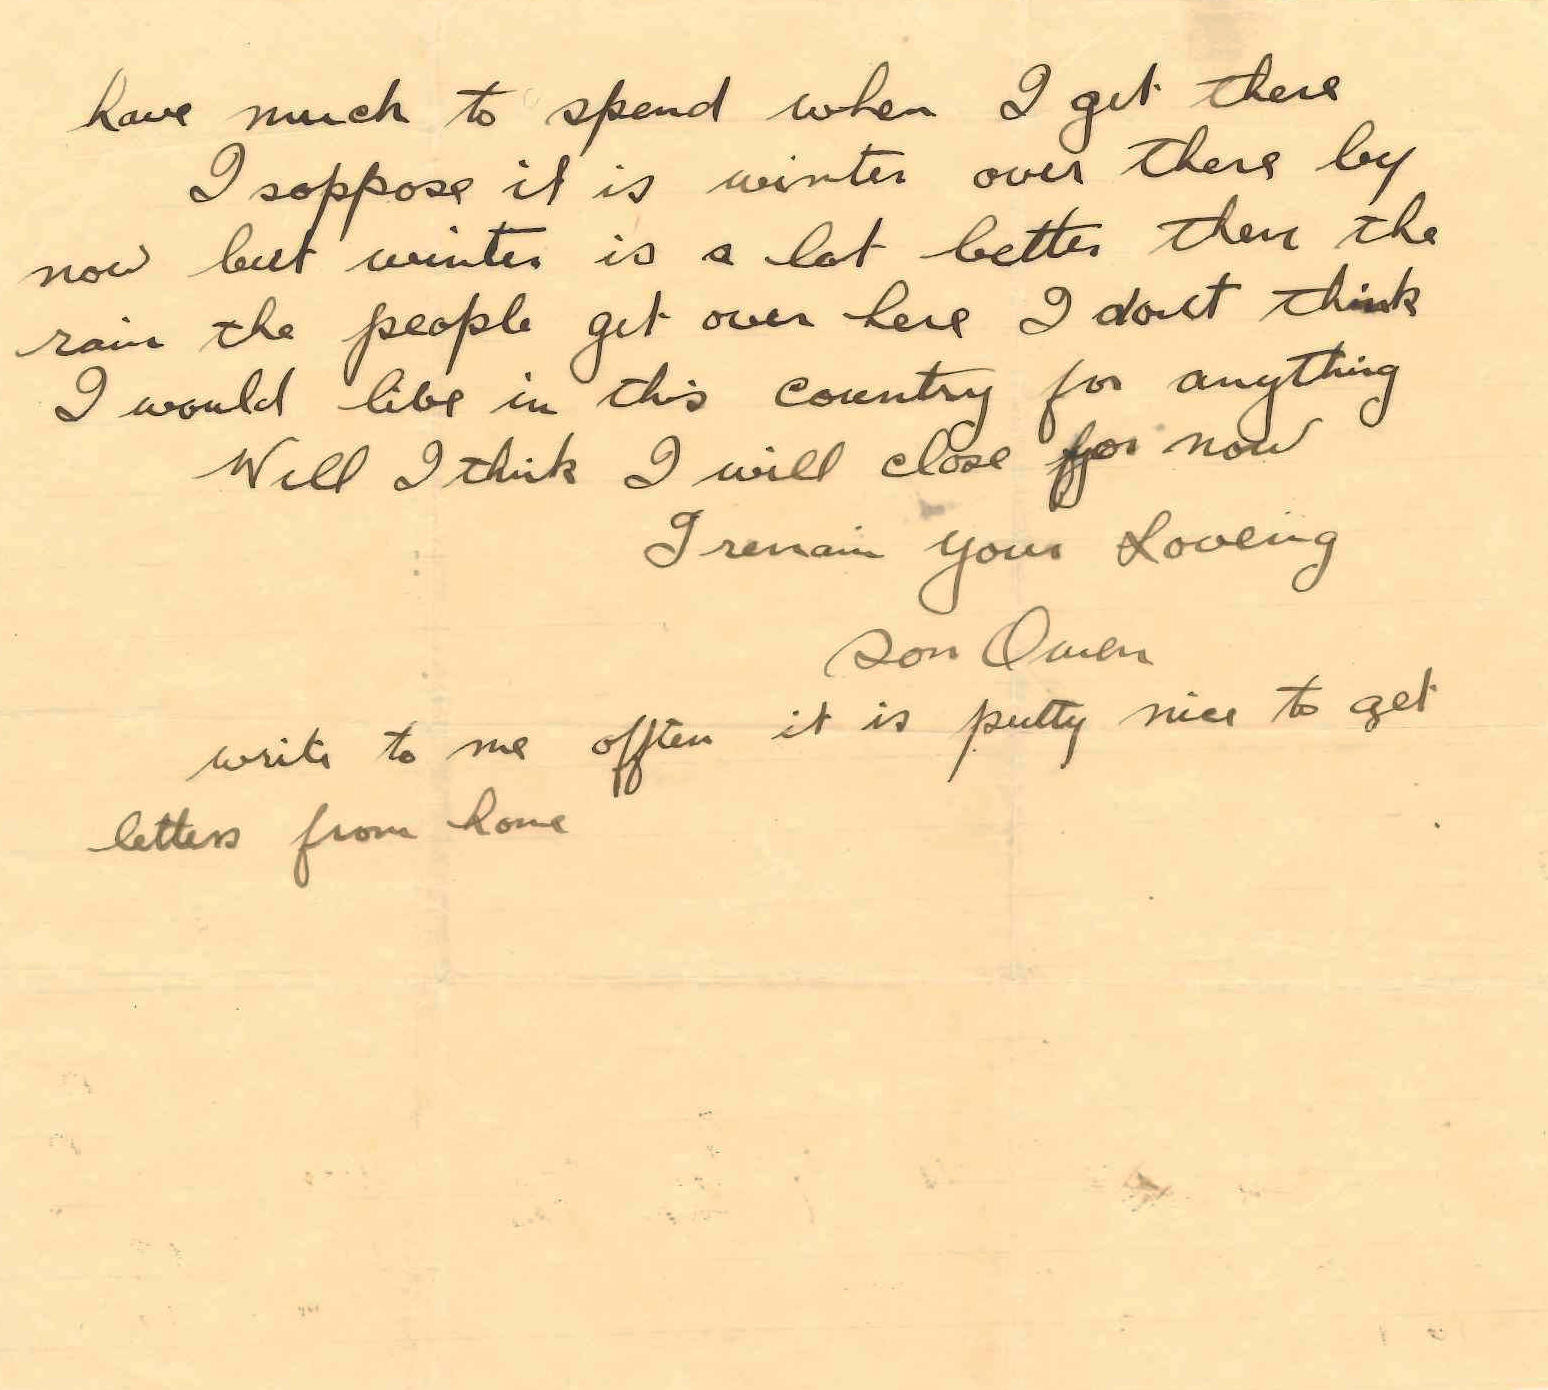 have much to spend when I get there
I soppose it is winter over there by
now but winter is a lot better then the
rain the people get over here I dont think
I would live in this country for anything
Well I think I will close for now
I remain your Loveing
son Owen
write to me offten it is putty nice to get
letters from home